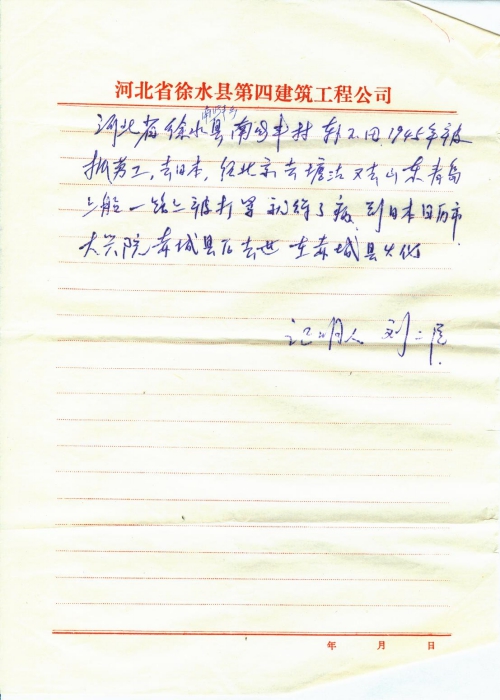 河北省徐水县第四建筑工程公司
河北省徐水县南 丰村 1945年被
抓劳工,去日本,经北京去塘沽又去山东青岛
上船一路上被打骂 得了病 到日本日历市
大兴院赤城县后去世 在赤城县火化
证明人 刘二
年 月 日